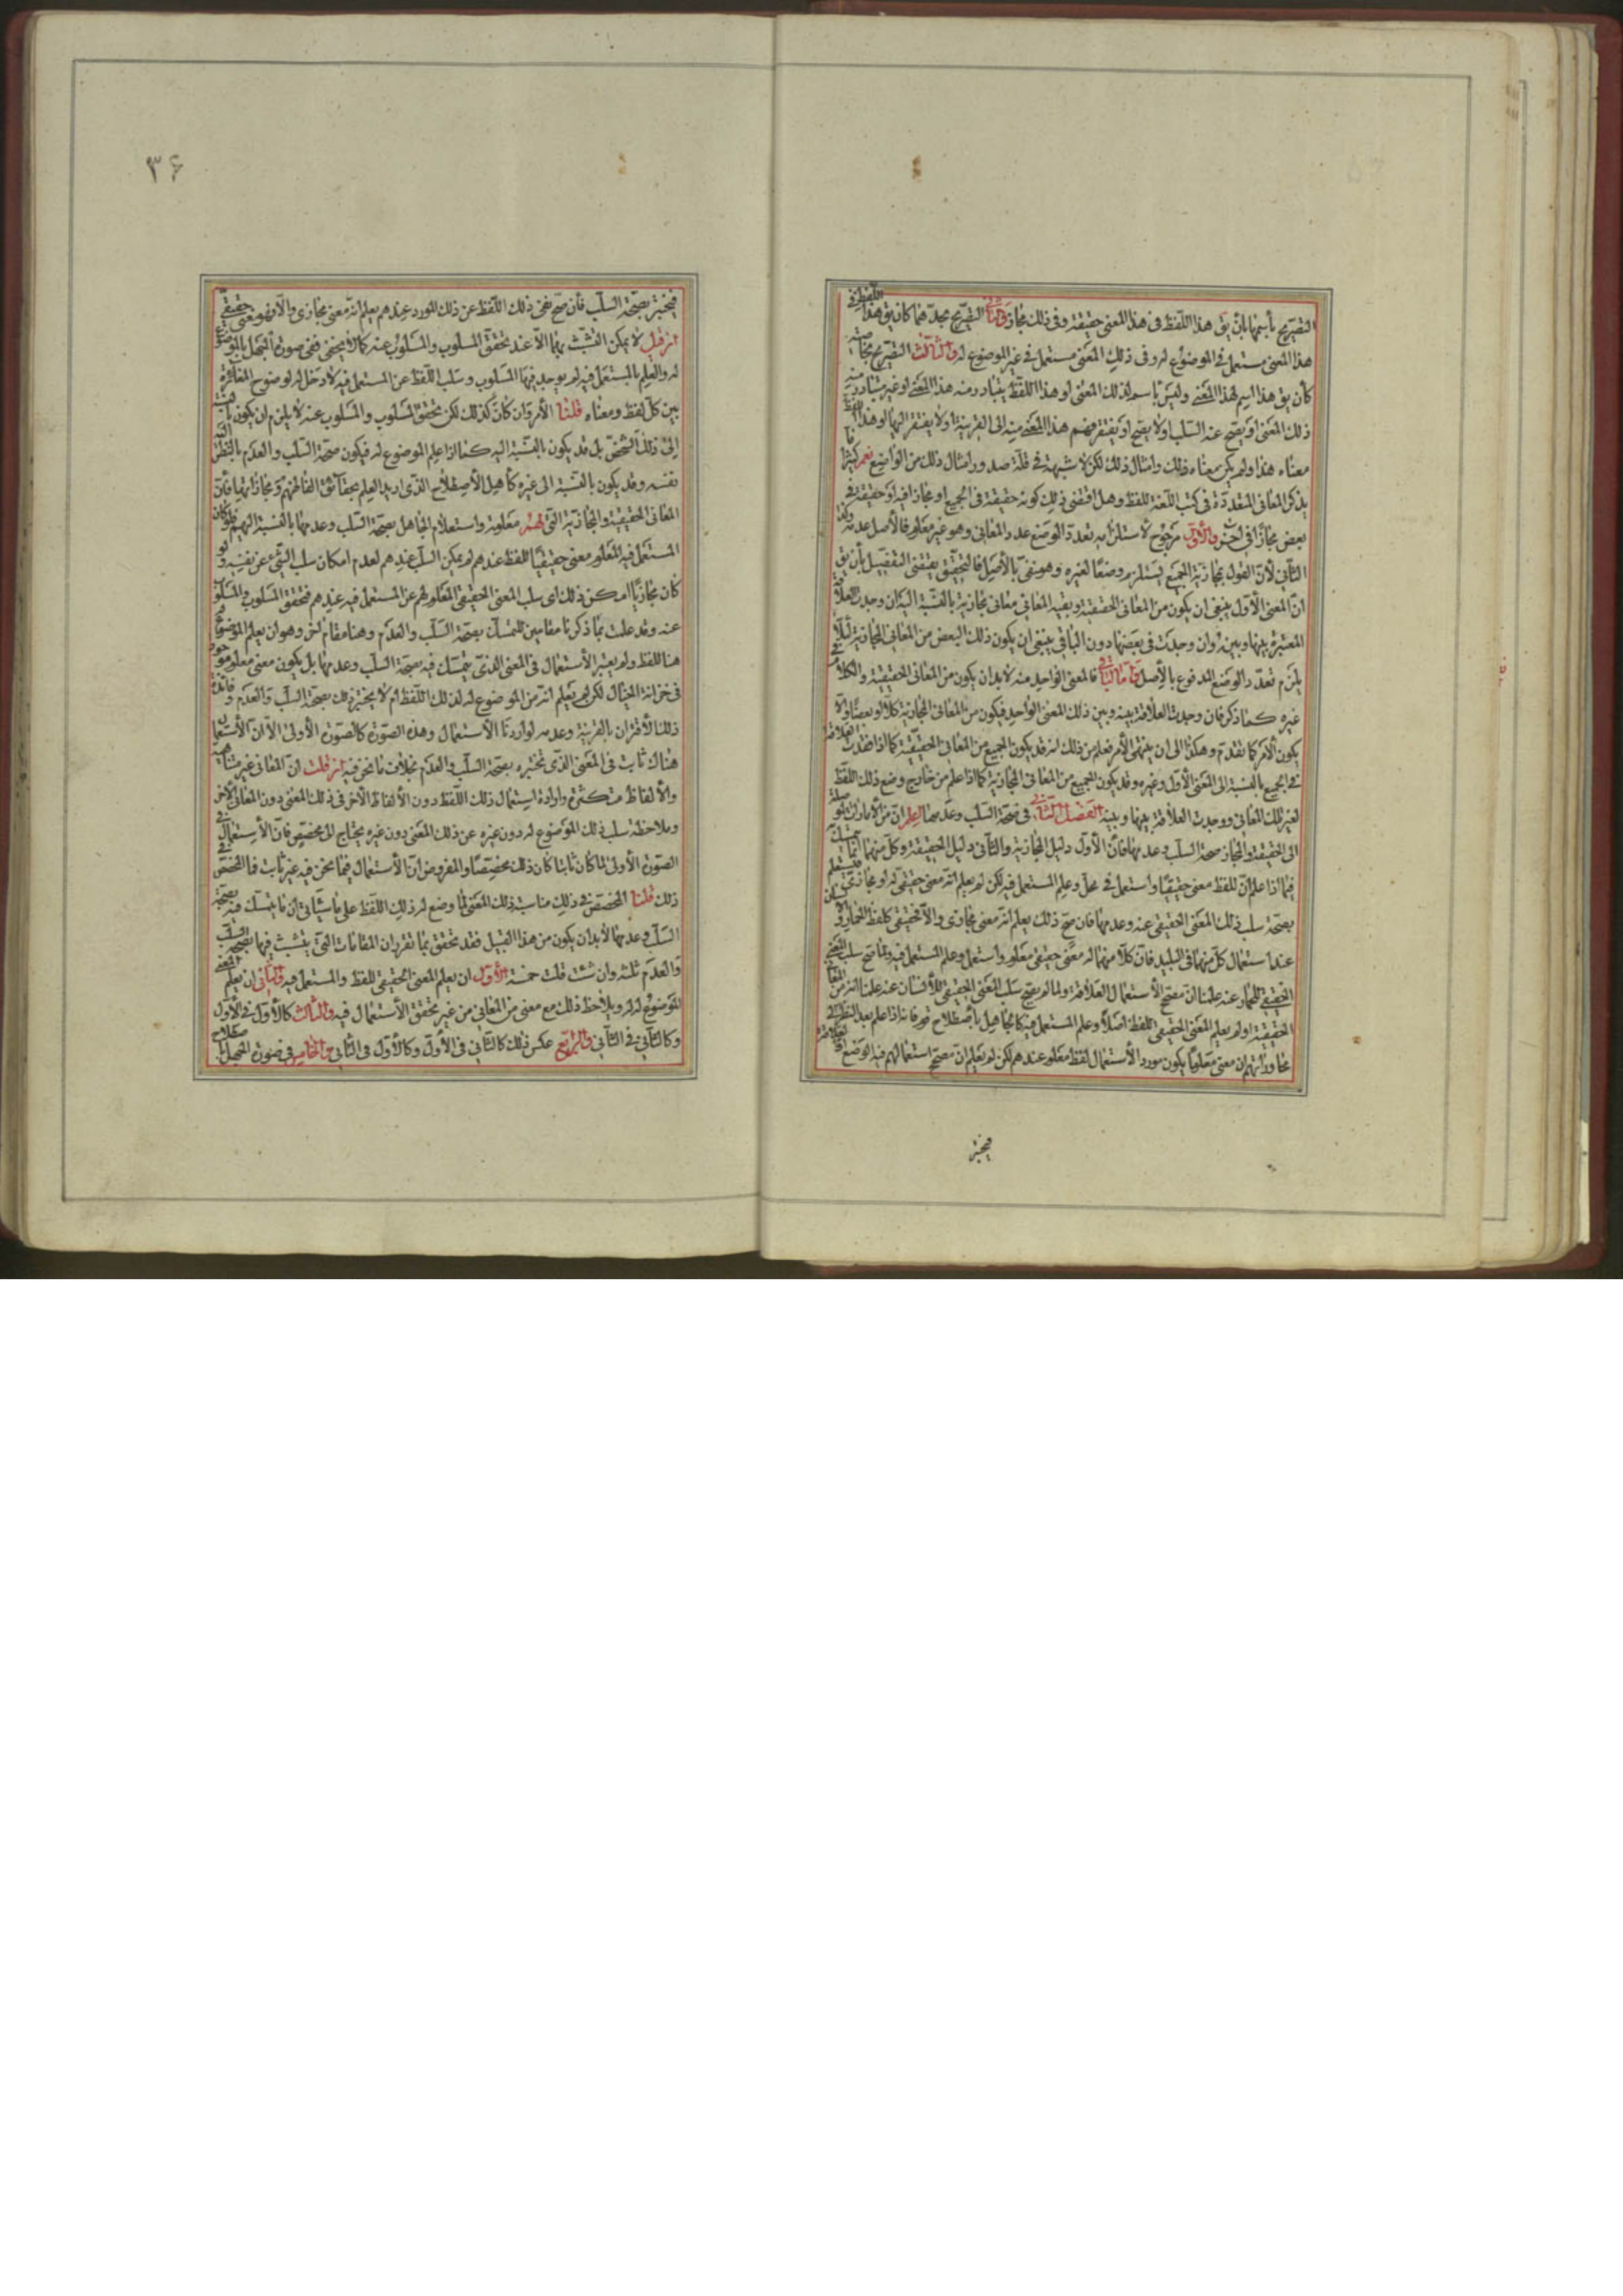 التصريح بأسمها بأن يق هذا اللفظ فى هذا المعنى حقيقة وفى ذلك مجاز والثانى التصريح بحدهما كان يق هذا اللفظ فى
هذا المعنى مستعمل فى الموضوع له وفى ذلك المعنى مستعمل فى غير الموضوع له والثالث التصريح بخاصته
كأن يق هذا اسم لهذا المعنى وليس باسم لذلك المعنى او هذا اللفظ يتبادر منه هذا المعنى او غير متبادر منه
ذلك المعنى او يصح عنه السلب او لا يصح او يفتقر فهم هذا المعنى منه الى القرينة او لا يفتقر اليها او هذا اللفظ
معناه هذا ولم يكن معناه ذلك وامثال ذلك لكن لا شبهة فى قلة صدور امثال ذلك من الواضع نعم كثيرا ما
يذكر المعانى المتعددة فى كتب اللغة للفظ وهل اقتضى ذلك كونه حقيقة فى الجميع او مجازا فيه او حقيقة فى
بعض مجازا فى اخر والأول مرجوح لاستلزامه تعدد الوضع عدد المعانى وهو غير معلوم فالأصل عدمه وكذا
الثانى لأن القول بمجازية الجميع يستلزم وضعا لغيره وهو منفى بالأصل فالتحقيق يقتضى التفصيل بأن يق
ان المعنى الأول ينبغى ان يكون من المعانى الحقيقية وبقية المعانى معانى مجازية بالنسبة اليه ان وجدت العلاقة
المعتبرة بينها وبينه وان وجدت فى بعضها دون الباقى ينبغى ان يكون ذلك البعض من المعانى المجازية لئلا
يلزم تعدد الوضع المدفوع بالأصل واما الباقى فالمعنى الواحد منه لابد ان يكون من المعانى الحقيقية والكلام فى
غيره كما ذكر فان وجدت العلاقة بينه وبين ذلك المعنى الواحد فيكون من المعانى المجازية كلا او بعضا والا
يكون الأمر كما تقدم وهكذا الى ان ينتهى الأمر فعلم من ذلك انه قد يكون الجميع من المعانى الحقيقية كما اذا فقدت العلاقة
فى الجميع بالنسبة الى المعنى الأول وغيره وقد يكون الجميع من المعانى المجازية كما اذا علم من خارج وضع ذلك اللفظ
لغير تلك المعانى ووجدت العلاقة بينها وبينه الفصل الثانى فى صحة السلب وعدمها اعلم ان من الأمارات الموصلة
الى الحقيقة والمجاز صحة السلب وعدمها فان الأول دليل المجازية والثانى دليل الحقيقة وكل منهما انما يتمسك
فيما اذا علم ان للفظ معنى حقيقيا واستعمل فى محل وعلم المستعمل فيه لكن لم يعلم انه معنى حقيقى له او مجازى فيستعلم
بصحة سلب ذلك المعنى الحقيقى عنه وعدمها فان صح ذلك يعلم انه معنى مجازى والا فحقيقى كلفظ الحمار والأنسان
عند استعمال كل منهما فى البليد فان كلا منهما له معنى حقيقى معلوم واستعمل وعلم المستعمل فيه ولما صح سلب المعنى
الحقيقى للحمار عنه علمنا ان مصحح الأستعمال العلاقة ولما لم يصح سلب المعنى الحقيقى للأنسان عنه علمنا انه من المعانى
الحقيقية او لم يعلم المعنى الحقيقى للفظ اصلا وعلم المستعمل فيه كالجاهل بأصطلاح قوم فانه اذا علم بعد النظر فى
محاوراتهم ان معنى معلوما يكون مورد الأستعمال لفظ معلوم عندهم لكن لم يعلم ان مصحح استعمالهم فيه الوضع او العلاقة
فيختبر
۳۶
فيختبر بصحة السلب فأن صح نفى ذلك اللفظ عن ذلك المورد عندهم يعلم انه معنى مجازى والا فهو معنى حقيقى
ان قيل لا يمكن التشبث بهما الا عند تحقق المسلوب والمسلوب عنه كما لا يخفى ففى صورة الجهل بالموضوع
له والعلم بالمستعمل فيه لم يوجد فيها المسلوب وسلب اللفظ عن المستعمل فيه لا دخل له لوضوح المغائرة
بين كل لفظ ومعناه قلنا الأمر وان كان كذلك لكن تحقق المسلوب والمسلوب عنه لا يلزم ان يكون بالنسبة
الى ذلك الشخص بل قد يكون بالنسبة اليه كما اذا علم الموضوع له فيكون صحة السلب والعدم بالنظر الى
نفسه وقد يكون بالنسبة الى غيره كأهل الأصطلاح الذى اريد العلم بحقائق الفاظهم ومجازاتها فأن
المعانى الحقيقية والمجازية التى لهم معلومة واستعلام الجاهل بصحة السلب وعدمها بالنسبة اليهم فلو كان
المستعمل فيه المعلوم معنى حقيقيا للفظ عندهم لم يمكن السلب عندهم لعدم امكان سلب الشىء عن نفسه ولو
كان مجازيا امكن ذلك اى سلب المعنى الحقيقى المعلوم لهم عن المستعمل فيه عندهم فتحقق المسلوب والمسلوب
عنه وقد علمت بما ذكرنا مقامين للتمسك بصحة السلب والعدم وهنا مقام اخر وهو ان يعلم الموضوع له
هنا للفظ ولم يعتبر الأستعمال فى المعنى الذى يتمسك فيه بصحة السلب وعدمها بل يكون معنى معلوم موجود
فى خزانة الخيال لكن لم يعلم انه من الموضوع له لذلك اللفظ ام لا يختبر ذلك بصحة السلب والعدم وفائدة
ذلك الأقتران بالقرينة وعدمه لو اردنا الأستعمال وهذه الصورة كالصورة الأولى الا ان الأستعمال
هناك ثابت فى المعنى الذى تختبره بصحة السلب والعدم بخلاف ما نحن فيه ان قلت ان المعانى غير متناهية
والألفاظ متكثرة وارادة استعمال ذلك اللفظ دون الألفاظ الأخر فى ذلك المعنى دون المعانى الأخر
وملاحظة سلب ذلك الموضوع له دون غيره عن ذلك المعنى دون غيره يحتاج الى مخصص فان الأستعمال فى
الصورة الأولى لما كان ثابتا كان ذلك مخصصا والمفروض ان الأستعمال فيما نحن فيه غير ثابت فما المخصص فى
ذلك قلنا المخصص فى ذلك مناسبة ذلك المعنى لما وضع له ذلك اللفظ على ما سيأتى ان ما يتمسك فيه بصحة
السلب وعدمها لابد ان يكون من هذا القبيل فقد تحقق بما تقرر ان المقامات التى يتشبث فيها بصحة السلب
والعدم ثلثة وان شئت قلت خمسة الأول ان يعلم المعنى الحقيقى للفظ والمستعمل فيه والثانى ان يعلم المعنى
الموضوع له له ويلاحظ ذلك مع معنى من المعانى من غير تحقق الأستعمال فيه والثالث كالأول فى الأول
وكالثانى فى الثانى والرابع عكس ذلك كالثانى فى الأول وكالأول فى الثانى والخامس فى صورة الجهل باصطلاح